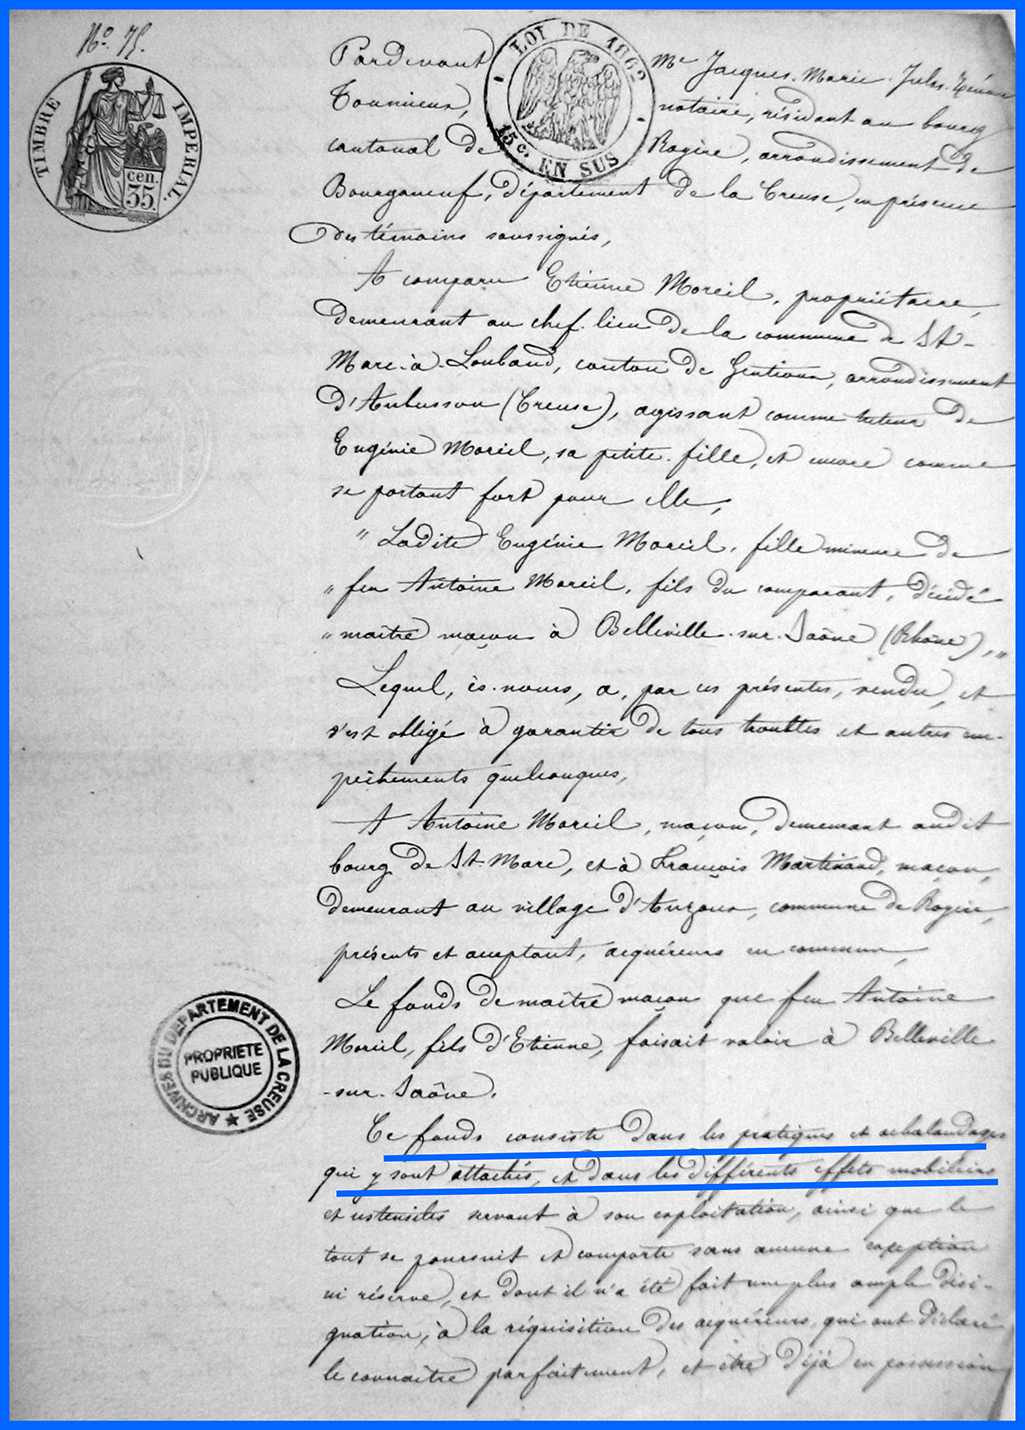 N° 75.
TIMBRE IMPERIAL.
cen.
35
LOI DE 1862
15 c. EN SUS
Pardevant Me Jacques-Marie-Jules-
notaire, résidant au bourg
cantonal de Royère, arrondissement de
Bourganeuf, département de la Creuse, en présence
des témoins soussignés,
A comparu Etienne Moreil, propriétaire,
demeurant au chef-lieu de la commune de St-
Marc-à-Loubaud, canton de Gentioux, arrondissement
d'Aubusson (Creuse), agissant comme tuteur de
Eugénie Moreil, sa petite-fille, et encore comme
se portant fort pour elle,
" Ladite Eugénie Moreil, fille mineure de
" feu Antoine Moreil, fils du comparant, décédé
" maître maçon à Belleville-sur-Saône (Rhône), "
Lequel, ès-noms, a, par ces présentes, vendu, et
s'est obligé à garantir de tous troubles et autres em-
pêchements quelconques,
A Antoine Moreil, maçon, demeurant audit
bourg de St-Marc, et à François Martinaud, maçon,
demeurant au village d'Auzoux, commune de Royère,
présents et acceptant, acquéreurs en commun,
Le fonds de maître maçon que feu Antoine
Moreil, fils d'Etienne, faisait valoir à Belleville
-sur-Saône.
ARCHIVES DU DEPARTEMENT DE LA CREUSE
PROPRIETE
PUBLIQUE
Ce fonds consiste dans les pratiques et achalandages
qui y sont attachés, et dans les différents effets mobiliers
et ustensiles servant à son exploitation, ainsi que le
tout se poursuit et comporte sans aucune exception
ni réserve, et dont il n'a été fait une plus ample dési-
gnation, à la réquisition des acquéreurs, qui ont déclaré
le connaître parfaitement, et être déjà en possession